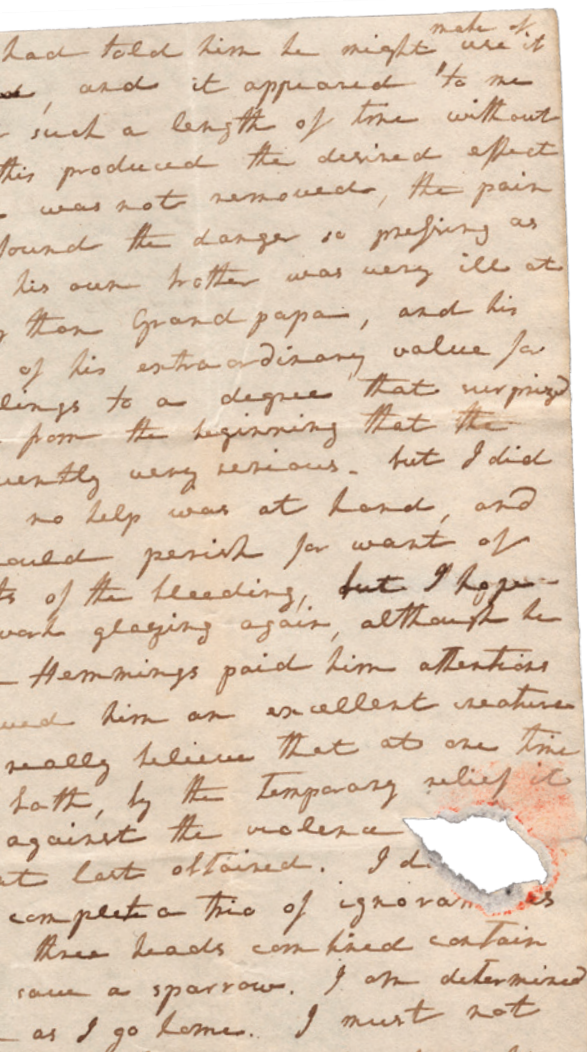 make of
had told him he might use it
, and it appeared to me
such a length of time without
this produced the desired effect
was not removed, the pain
found the danger so pressing as
his own brother was very ill at
than Grand papa, and his
of his extraordinary value for
lings to a degree that surprized
from the beginning that the
uently very serious. but I did
no help was at hand, and
ould perish for want of
ts of the bleeding, but I hope
work glazing again, although he
Hemmings paid him attentions
ued him an excellent creature
really believe that at one time
bath, by the temporary relief it
against the violence
at last obtained. I d
complete a trio of ignoram es
three heads combined contain
save a sparrow. I am determined
as I go home. I must not